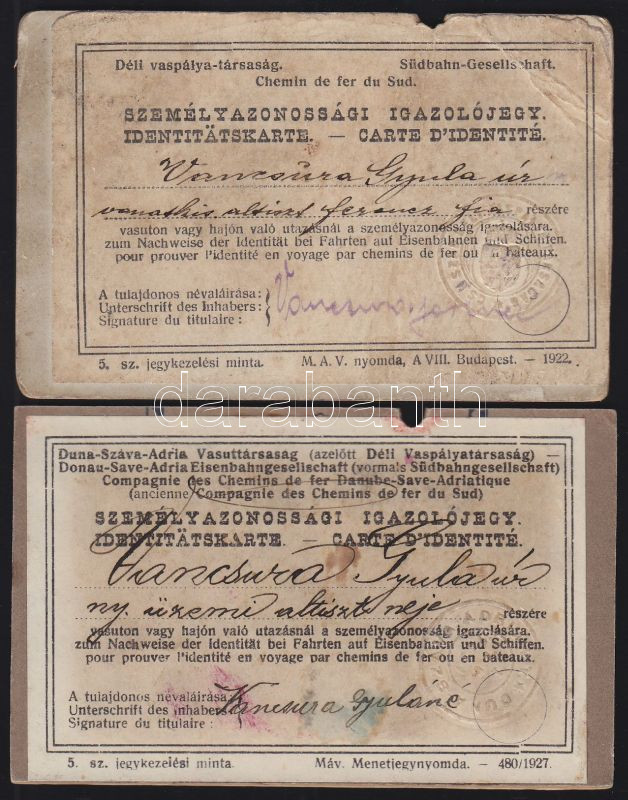 Déli vaspálya-társaság. Südbahn-Gesellschaft.
Chemin de fer du Sud.
SZEMÉLYAZONOSSÁGI IGAZOLÓJEGY.
IDENTITÄTSKARTE. — CARTE D'IDENTITÉ.
Vancsura Gyula úr
altiszt ferencz fia részére
vasuton vagy hajón való utazásnál a személyazonosság igazolására.
zum Nachweise der Identität bei Fahrten auf Eisenbahnen und Schiffen.
pour prouver l'identité en voyage par chemins de fer où en bateaux.
A tulajdonos névaláirása:
Unterschrift des Inhabers:
Signature du titulaire:
Vancsura
5. sz. jegykezelési minta. M. A. V. nyomda, A VIII. Budapest. — 1922.
darabanth
Duna-Száva-Adria Vasuttársaság (azelőtt Déli Vaspályatársaság) —
Donau-Save-Adria Eisenbahngesellschaft (vormals Südbahngesellschaft)
Compagnie des Chemins de fer Danube-Save-Adriatique
(ancienne) Compagnie des Chemins de fer du Sud)
SZEMÉLYAZONOSSÁGI IGAZOLÓJEGY.
IDENTITÄTSKARTE. — CARTE D'IDENTITÉ.
Vancsura Gyula úr
ny. üzemi altiszt neje részére
vasuton vagy hajón való utazásnál a személyazonosság igazolására.
zum Nachweise der Identität bei Fahrten auf Eisenbahnen und Schiffen.
pour prouver l'identité en voyage par chemins de fer ou en bateaux.
A tulajdonos névaláirása:
Unterschrift des Inhabers:
Signature du titulaire:
Vancsura Gyuláné
5. sz. jegykezelési minta. Máv. Menetjegynyomda. — 480/1927.